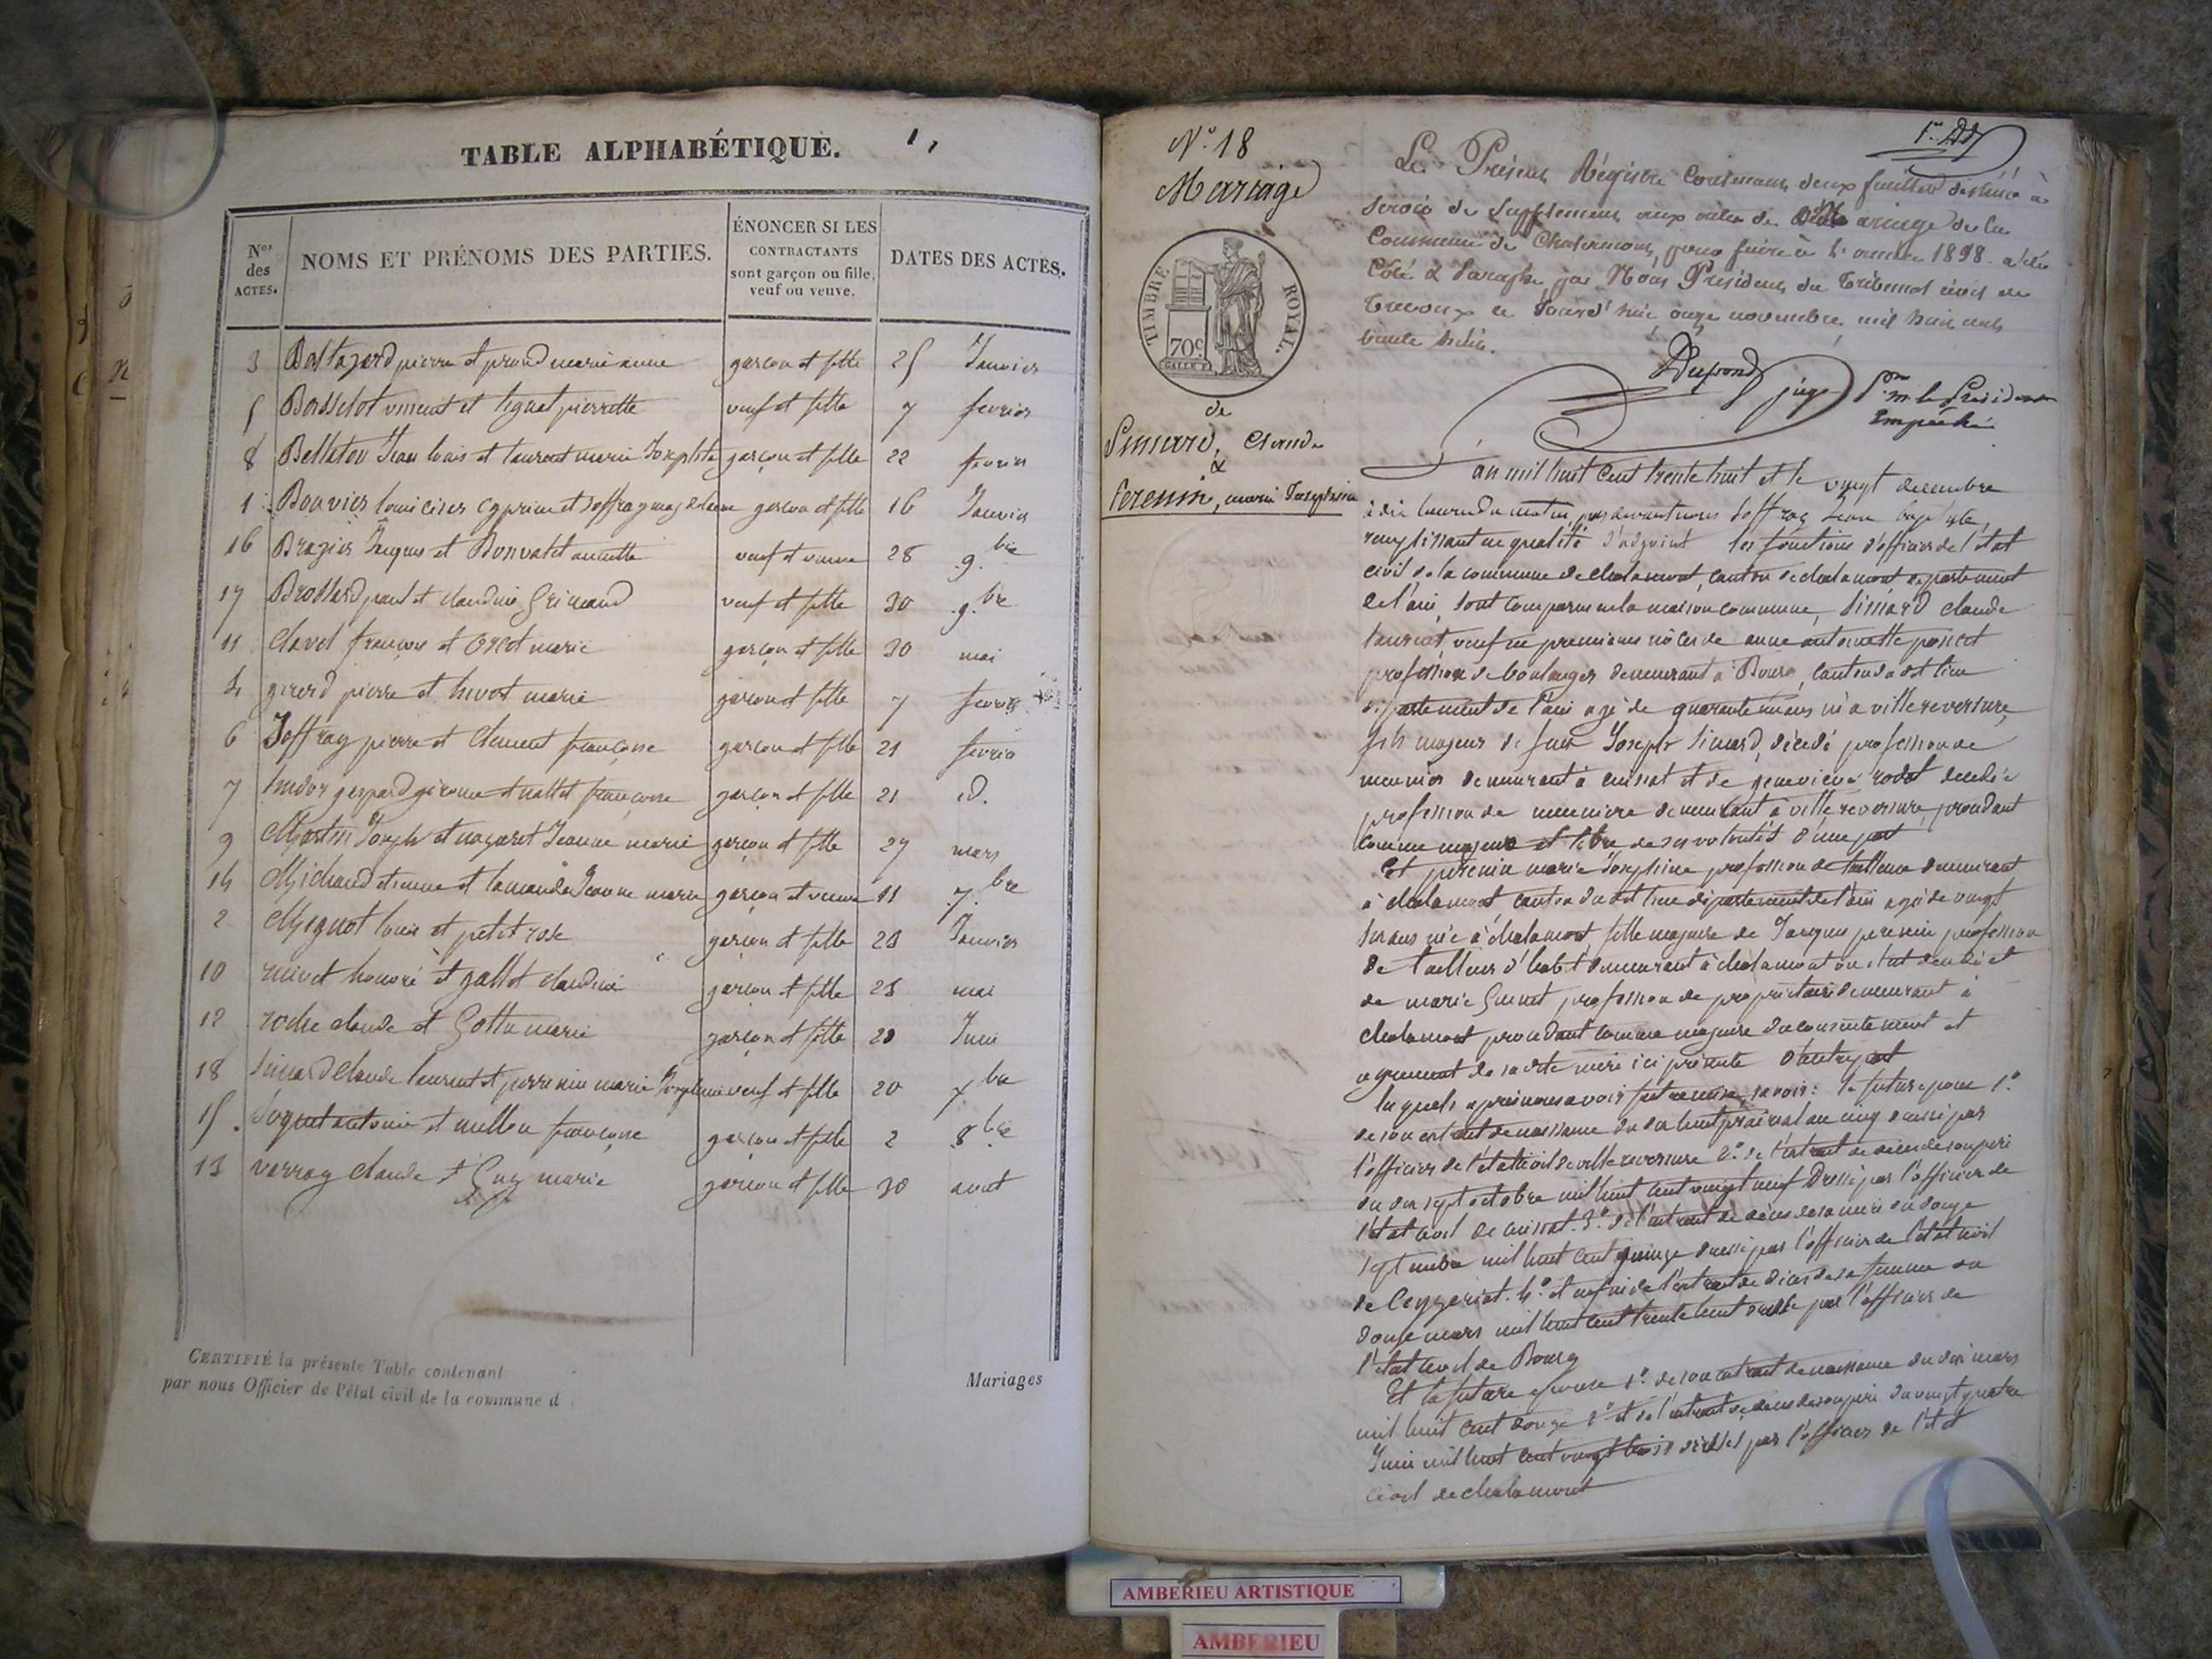 TABLE ALPHABÉTIQUE. 1,
Nos des ACTES.
NOMS ET PRÉNOMS DES PARTIES.
ÉNONCER SI LES
CONTRACTANTS
sont garçon ou fille,
veuf ou veuve.
DATES DES ACTES.
3 Baltazard pierre et marie anne garcon et fille 25 Janvier
5 Basselot vincent et pierrette veuf et fille 7 fevrier
8 Bellaton Jean louis et laurent marie Josephte garçon et fille 22 fevrier
1 Bouvier louis cyprien et Joffray magdeleine garcon et fille 16 Janvier
16 Brazier Jacques et Bonvalet annette veuf et veuve 28 9.bre
17 Brossard paul et claudine Grimaud veuf et fille 30 9.bre
11 Clavel françois et marie garçon et fille 30 mai
4 girerd pierre et marie garcon et fille 7 fevrier
6 Joffray pierre et Clement françoise garcon et fille 21 fevrier
7 gaspard et françoise garçon et fille 21 id.
9 Martin Joseph et Jeanne marie garçon et fille 27 mars
14 Michaud etienne et Jeanne marie garçon et veuve 11 7.bre
2 Mignot louis et petit rose garçon et fille 23 Janvier
10 honoré et gallet claudine garcon et fille 23 mai
12 roche claude et marie garçon et fille 28 Juin
18 Simard Claude laurent et perrenin marie Josephine veuf et fille 20 bre
15 antoine et françoise garçon et fille 2 8bre
13 varray claude et Guy marie garcon et fille 30 aout
CERTIFIÉ la présente Table contenant
par nous Officier de l'état civil de la commune d
Mariages
N.º 18
Mariage
TIMBRE ROYAL.
70c
de
Simard, Claude
&
Perenin, marie Josephine
1er
Le Présent Régistre Contenant deux feuillets destiné à
servir de Supplement aux actes de Mariage de la
Commune de Chalamont, pour l'année 1838 a été
Côté & Paraphé par Nous Président du Tribunal civil de
Trevoux ce Jourd'hui onze novembre mil huit cent
trente huit.
Dupond juge Pr m. le President
Empêché
L'an mil huit cent trente huit et le vingt decembre
à dix heures du matin par devant nous Joffray Jean baptiste,
remplissant en qualité d'adjoint les fonctions d'officier de l'état
civil de la commune de chalamont, canton de chalamont département
de l'ain, sont comparus en la maison commune, Simard claude
laurent, veuf en premieres nôces de anne antoinette poncet
profession de boulanger demeurant à Bourg, canton du dit lieu
département de l'ain agé de quarante ans né a villereversure,
fils majeur de feu Joseph Simard, décédé profession de
meunier demeurant à cuisiat et de genevieve rodet décédée
profession de meuniere demeurant à villereversure, procédant
comme majeur et libre de ses volontés d'une part
Et perenin marie Josephine profession de tailleuse demeurant
à chalamont canton du dit lieu département de l'ain agée de vingt
six ans née à chalamont fille majeure de Jacques perenin profession
de tailleur d'habit demeurant à chalamont ou il est decedé et
de marie Guinet profession de propriétaire demeurant à
chalamont procédant comme majeure du consentement et
agrement de sa dite mere ici présente d'autre part
lesquels après nous avoir fait remise, savoir: le futur epoux 1.º
de son extrait de naissance du dix huit prairial an cinq dressé par
l'officier de l'état civil de villereversure 2.º de l'extrait de décès de son pere
du dix sept octobre mil huit cent vingt neuf dressé par l'officier de
l'état civil de cuisiat. 3.º de l'extrait de décès de sa mere du douze
septembre mil huit cent quinze dressé par l'officier de l'état civil
de Ceyzeriat. 4.º et enfin de l'extrait de décès de sa femme du
douze mars mil huit cent trente huit dressé par l'officier de
l'état civil de Bourg
Et la future epouse 1.º de son extrait de naissance du dix mars
mil huit cent douze 2º et de l'extrait de deces de son pere du vingt quatre
Juin mil huit cent vingt trois dressés par l'officier de l'état
civil de chalamont
AMBERIEU ARTISTIQUE
AMBERIEU